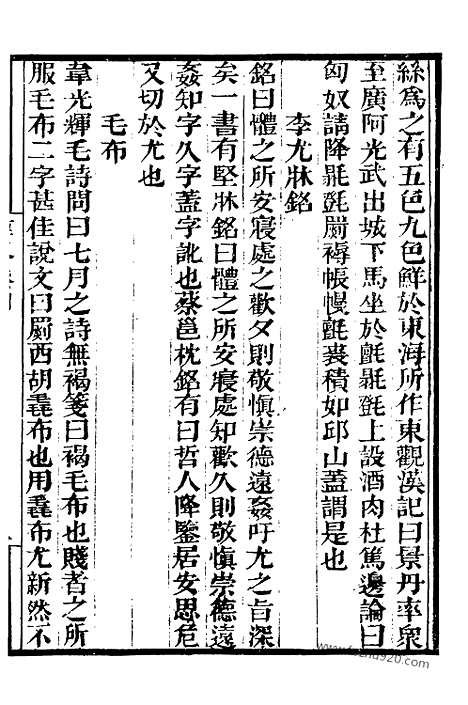 絲為之有五色九色鮮於東海所作東觀漢記曰景丹率衆
至廣阿光武出城下馬坐於氈毾㲪上設酒肉杜篤邊論曰
匈奴請降毾㲪罽褥帳幔氈裘積如邱山蓋謂是也
李尤牀銘
銘曰體之所安寢處之歡夕則敬慎崇德遠姦吁尤之旨深
矣一書有堅牀銘曰體之所安寢處知歡久則敬慎崇德遠
姦知字久字蓋字訛也蔡邕枕銘有曰哲人降鑒居安思危
又切於尤也
毛布
韋光輝毛詩問曰七月之詩無褐箋曰褐毛布也賤者之所
服毛布二字甚佳說文曰罽西胡毳布也用毳布尤新然不